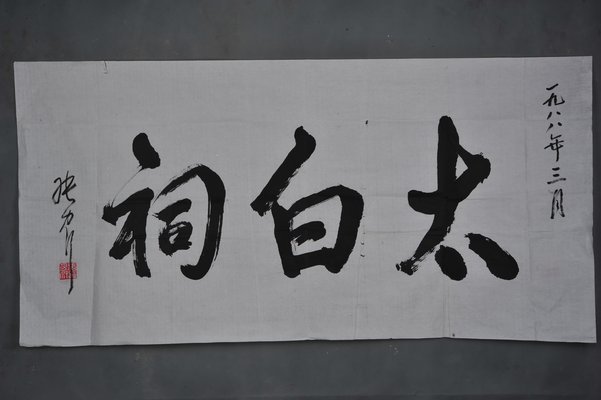 一九八八年三月
太白祠